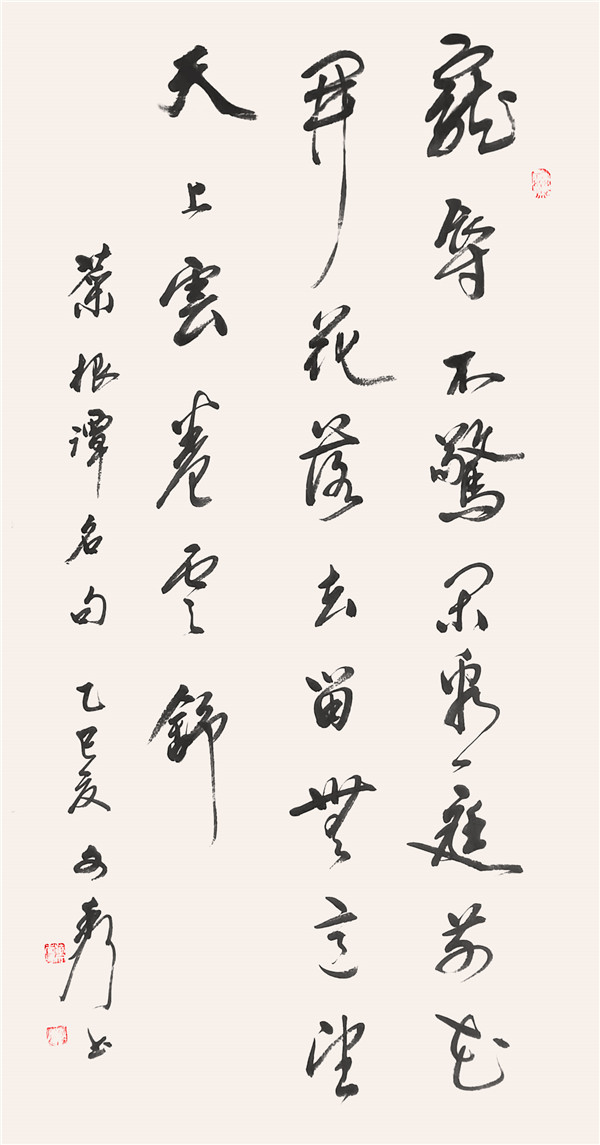 寵辱不驚閑看庭前花
開花落去留無意望
天上雲卷雲舒
菜根譚名句 乙巳夏 書